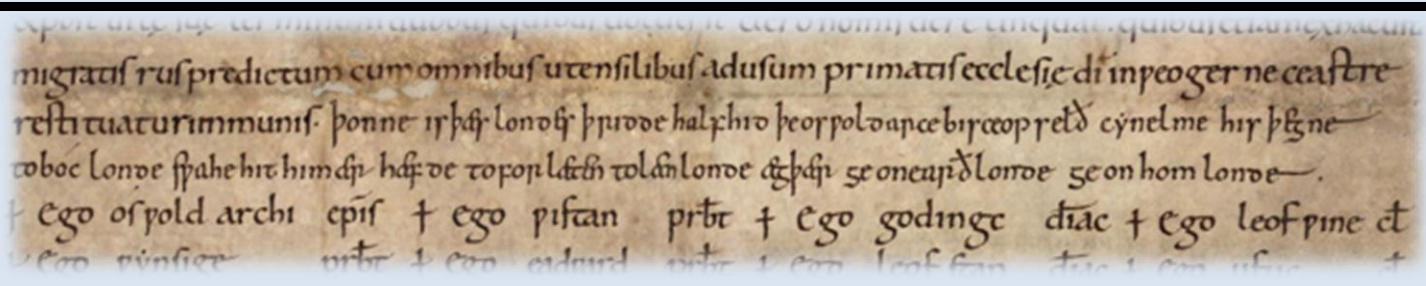 migratis rus predictum cum omnibus utensilibus ad usum primatis ecclesię dī in ƿeogerneceastre
restituatur inmunis. þonne is þæs londes þridde half hid þe osƿold arcebisceop seleð cynelme his þegne
to boc londe sƿa he hit him ær hæfde to forlæten to læn londe ægþær ge on earð londe ge on hom londe.
† ego osƿold archi epīs † ego ƿistan prƀt † ego godingc diāc † ego leofƿine cƚ
† ego ƿynsige prƀt † ego eadƿerd prƀt † ego leofstan diāc † ego